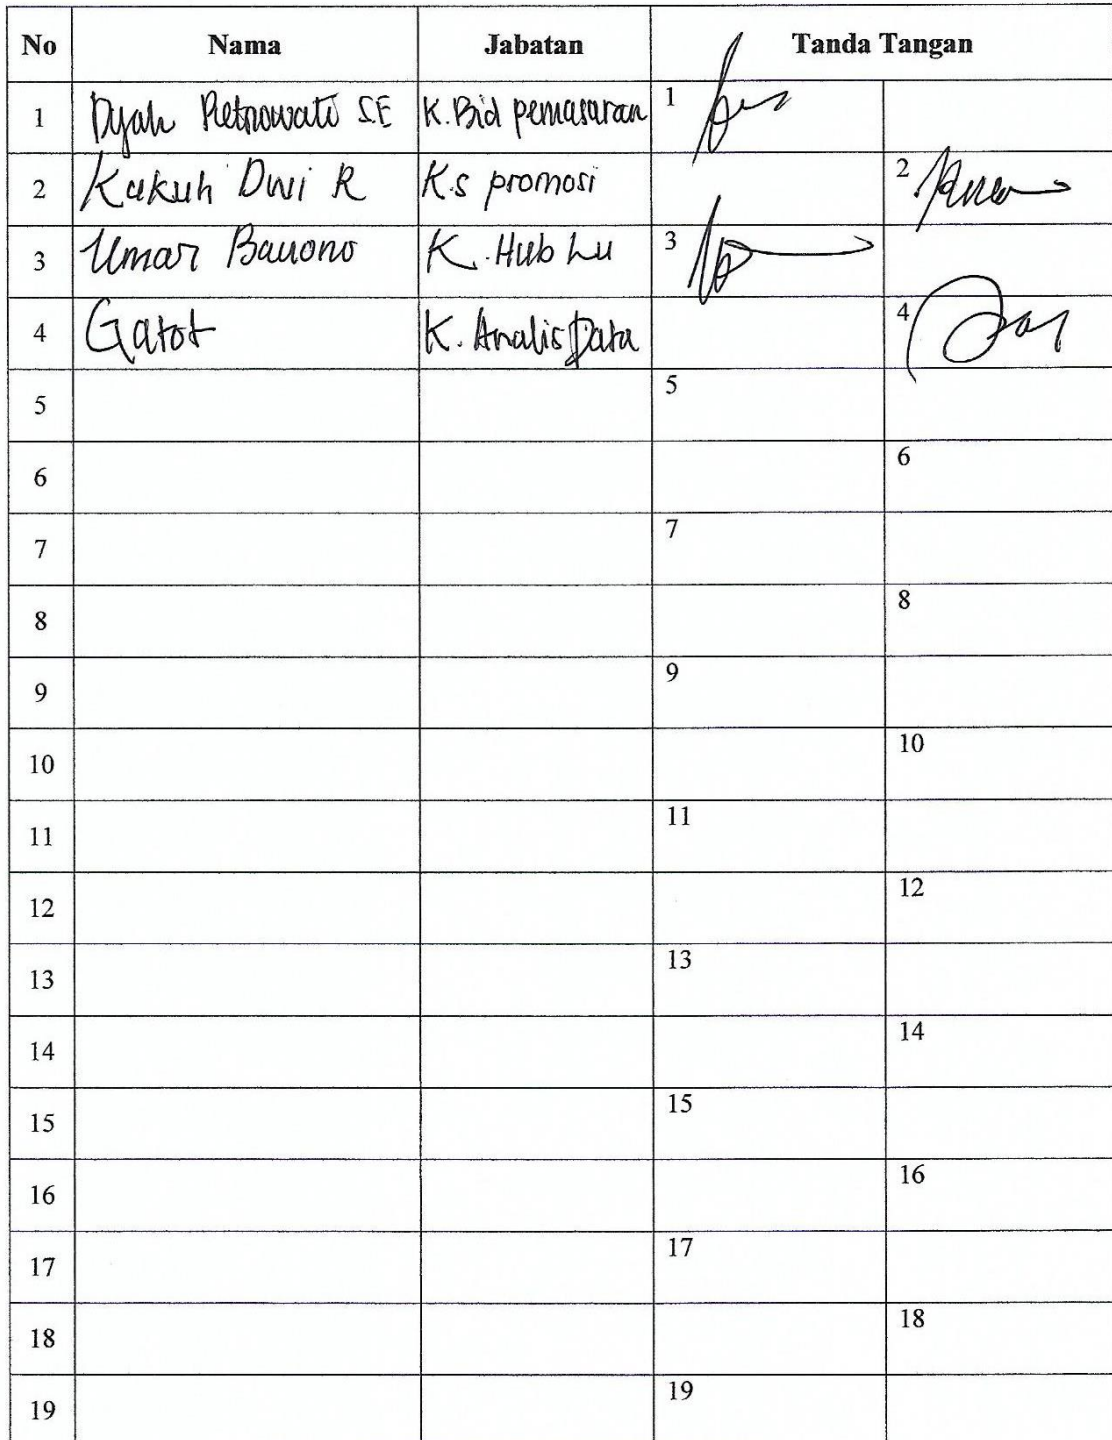 No Nama Jabatan Tanda Tangan
1 Dyah Retnowati SE K.Bid pemasaran 1
2 Kukuh Dwi R K.s promosi 2
3 Umar Bauono K. Hub Lu 3
4 Gatot K. Analis Data 4
5 5
6 6
7 7
8 8
9 9
10 10
11 11
12 12
13 13
14 14
15 15
16 16
17 17
18 18
19 19